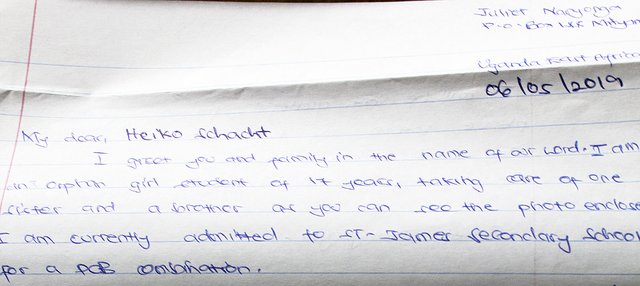 Juliet Nacyonga
P.O. Box 228 Mityan
Uganda East Africa
06/05/2019
My dear, Heiko Schacht
I greet you and family in the name of our Lord. I am
an orphan girl student of 17 years, taking care of one
sister and a brother as you can see the photo enclose
I am currently admitted to ST- James Secondary School
for a PCB combination.